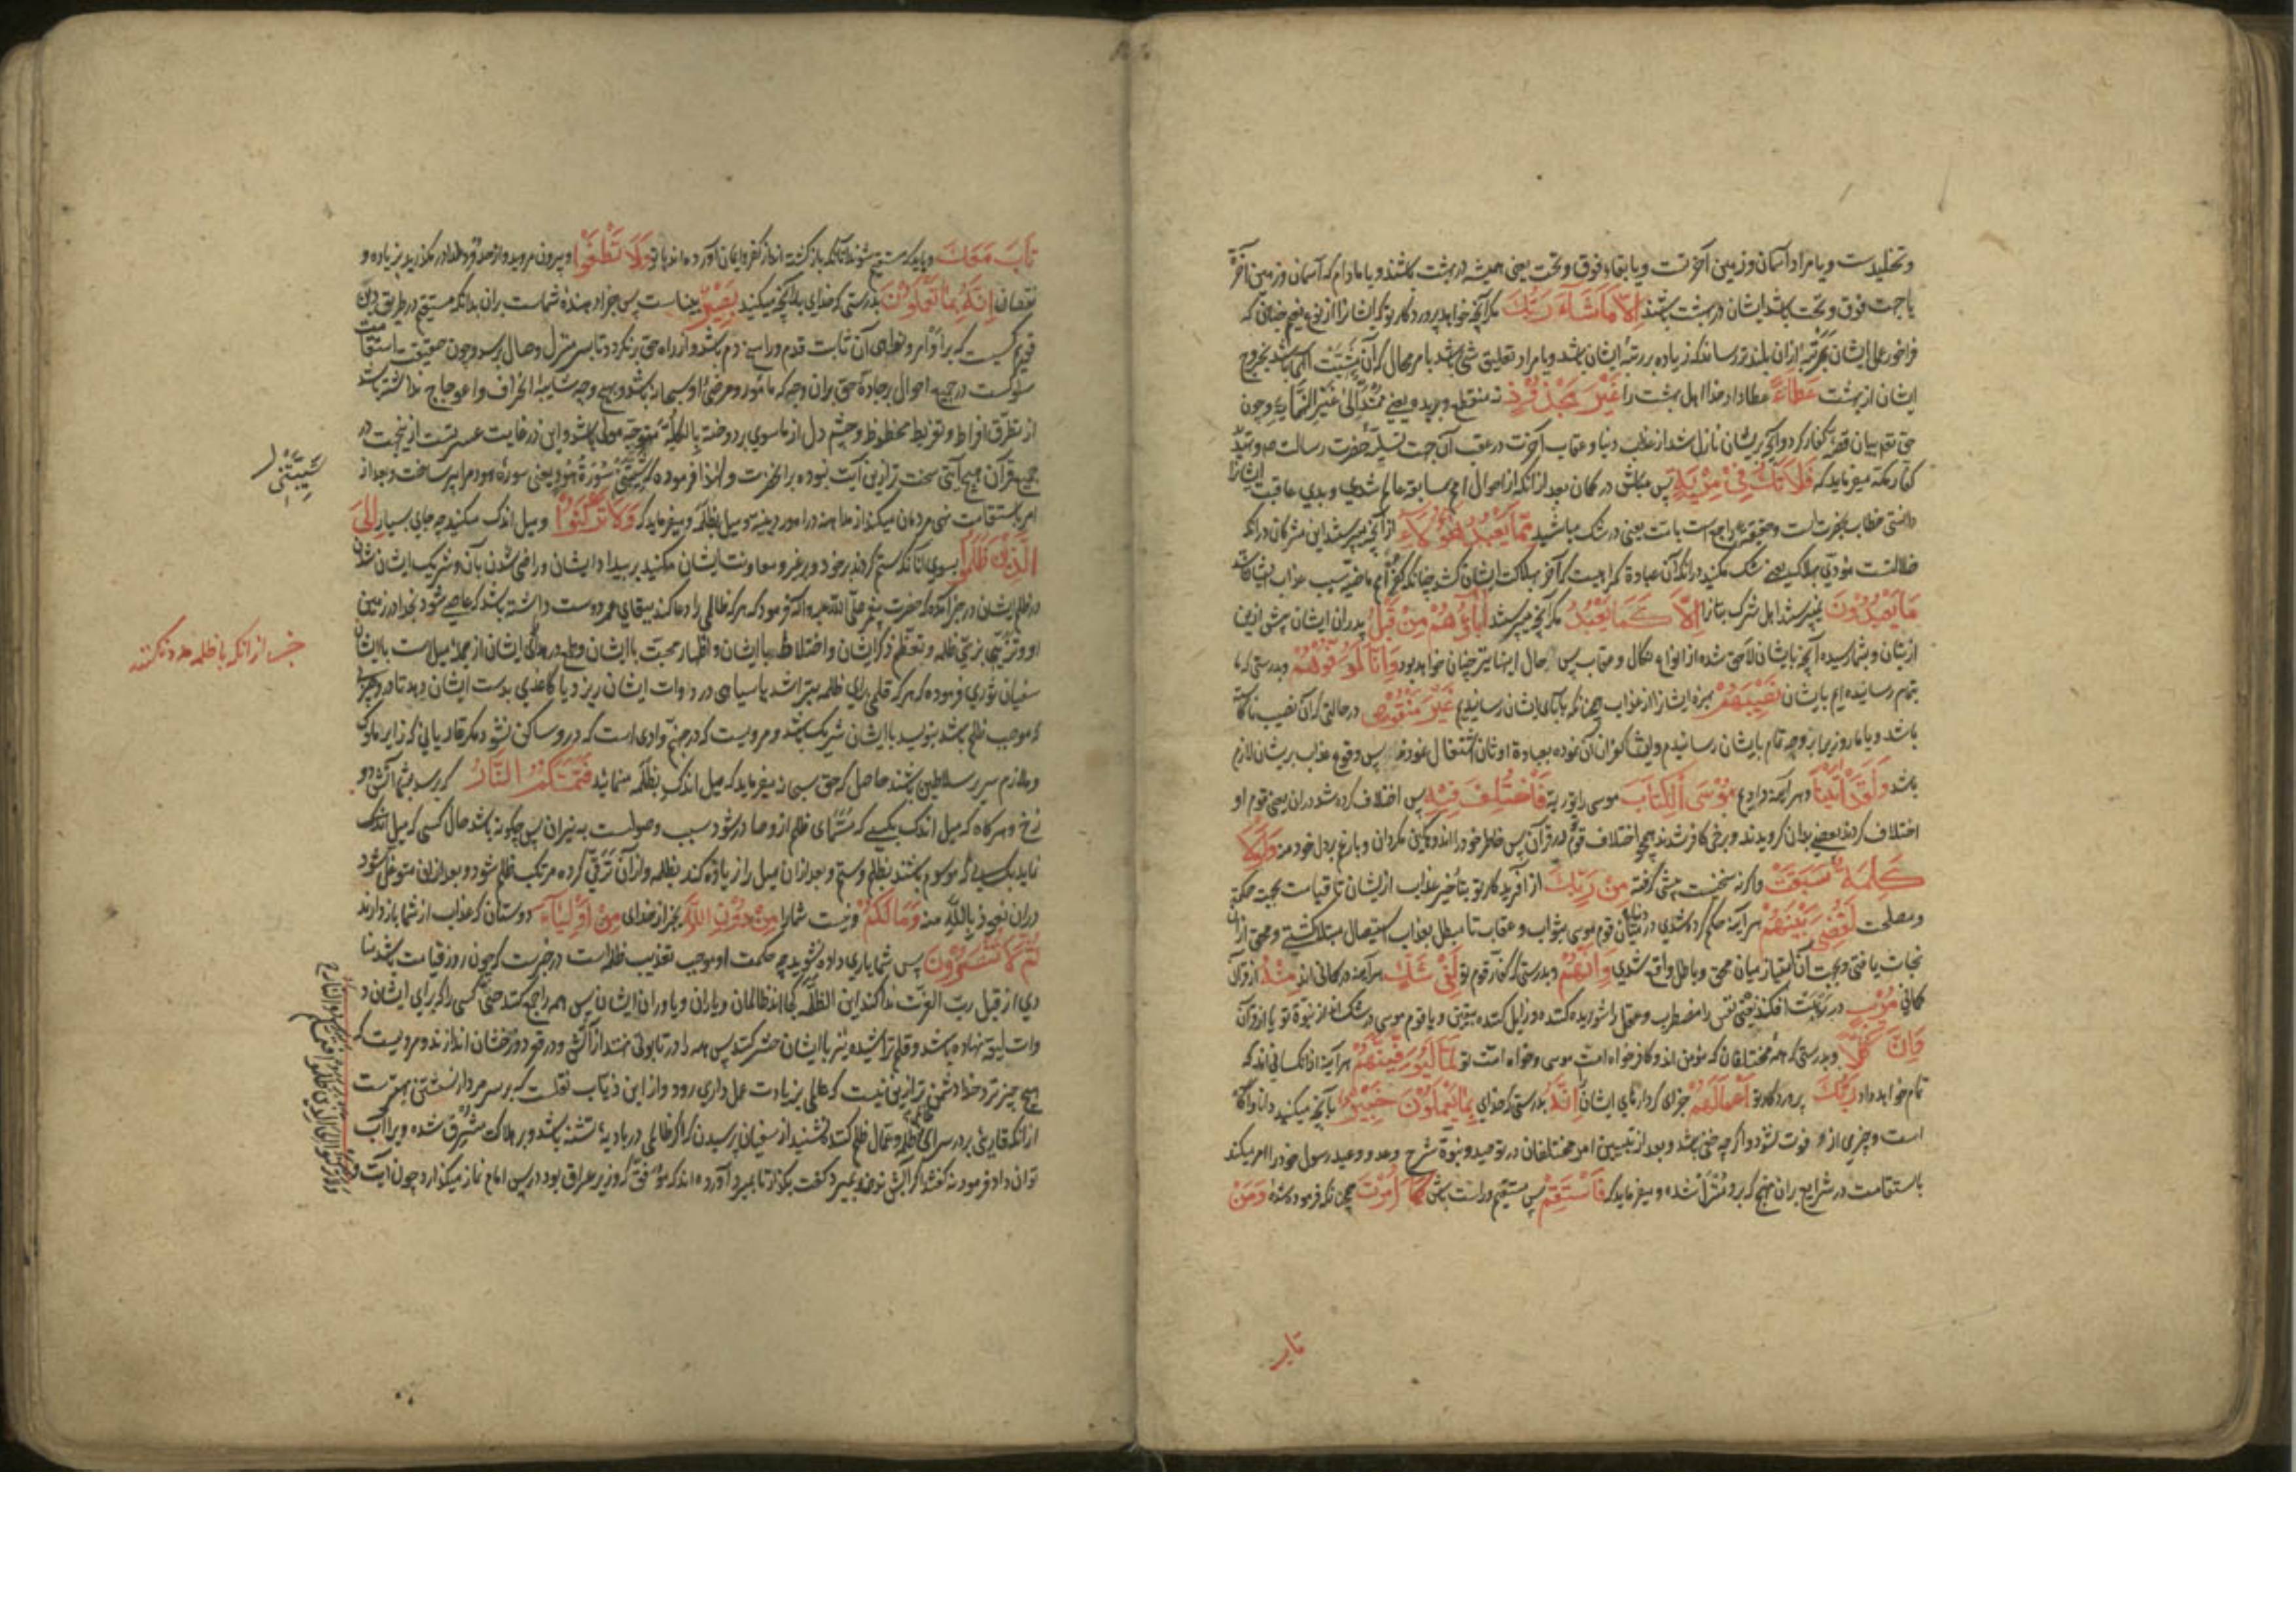 و تخلیدست و یا مراد آسمان و زمین آخرتست و یا بقاء فوق و تحت یعنی همیشه در بهشت باشند و یا مادام که آسمان و زمین آخرة
یا جهت فوق و تحت باشد ایشان در بهشت باشند اِلَّا مَا شَآءَ رَبُّكَ مکر آنچه خواهد پرورد کار تو که ایشانرا از نوع نعیم چنان که
فراخور عمل ایشان بمرتبهٔ ازان بلندتر رساند که زیاده بر رتبهٔ ایشان باشد و یا مراد تعلیق شئ باشد بامر محال که آن مشیّت الهی باشد بخروج
ایشان از بهشت عَطَاءً عطا داد خدا اهل بهشت را غَيْرَ مَجْذُوذٍ نه منقطع و بریده یعنی ممتدّ الی غیر النهایة و چون
حق تع بیان قصهٔ کفار کرد و آنچه بریشان نازل شد از عذاب دنیا و عقاب آخرت در عقب آن جهت تسلیهٔ حضرت رسالت ص و تهدید
کفار مکه میفرماید که فَلَا تَكُ فِي مِرْيَةٍ پس مباش در کمان بعد ازانکه از احوال امم سابقه عالم شدی و بدی عاقبت ایشانرا
دانستی خطاب بحضرتست و حقیقة راجع است بامت یعنی در شک مباشید مِمَّا يَعْبُدُ هٰؤُلَاءِ از آنچه میپرستند این مشرکان درانکه
ضلالتست مؤدی بهلاک یعنی شک مکنید درانکه آن عبادة کمراهیست که آخر بهلاکت ایشان کشد چنانکه کفر امم ماضیه سبب عذاب ایشان شد
مَا يَعْبُدُونَ نمیپرستند اهل شرک بتانرا اِلَّا كَمَا يَعْبُدُ مکر آنچه میپرستند اٰبَاؤُهُمْ مِنْ قَبْلُ پدران ایشان پیش ازین
ازیشان و بشما رسیده آنچه بایشان لاحق شده از انواع نکال و عقاب پس حال اینها نیز چنان خواهد بود وَاِنَّا لَمُوَفُّوهُمْ و بدرستی که ما
بتمام رساننده ایم بایشان نَصِيبَهُمْ بهرهٔ ایشانرا از عذاب همچنانکه بآبای ایشان رسانیدیم غَيْرَ مَنْقُوصٍ در حالتی که آن نصیب ناکاسته
باشد و یا ما روزی را بر وجه تمام بایشان رسانیدیم و ایشان کفران آن نموده بعبادة اوثان اشتغال نمودند پس وقوع عذاب بریشان لازم
باشد وَلَقَدْ اٰتَيْنَا و هر آینه دادیم مُوسَى الْكِتَابَ موسی را توریة فَاخْتُلِفَ فِيهِ پس اختلاف کرده شد دران یعنی قوم او
اختلاف کردند بعضی بدان کرویدند و برخی کافر شدند همچو اختلاف قوم تو در قرآن پس خاطر خود را اندوهکین مکردان و بارغم بر دل خود منه وَلَوْلَا
كَلِمَةٌ سَبَقَتْ و اکر نه سخنیست پیشی کرفته مِنْ رَبِّكَ از آفریدکار تو بتأخیر عذاب ازیشان تا قیامت بجهت حکمة
و مصلحت لَقُضِيَ بَيْنَهُمْ هر آینه حکم کرده شدی در میان قوم موسی بثواب و عقاب تا مبطل بعذاب استیصال مبتلا کشتی و محق ازان
نجات یافتی و بجهت آن امتیاز میان محق و باطل واقع شدی وَاِنَّهُمْ و بدرستی که کفار قوم تو لَفِي شَكٍّ هر آینه در کمانی اند مِنْهُ از قرآن
کمانی مُرِيبٍ در ریبت افکننده یعنی نفس را مضطرب و عقل را شوریده کننده و زایل کننده یقین و یا قوم موسی در شک اند از نبوة تو یا از قرآن
وَاِنَّ كُلًّا و بدرستی که همهٔ مختلفان که مؤمن اند و کافر خواه امت موسی و خواه امت تو لَمَّا لَيُوَفِّيَنَّهُمْ هر آینه ازانکسانی اند که
تمام خواهد داد رَبُّكَ پروردکار تو اَعْمَالَهُمْ جزای کردارهای ایشان اِنَّهُ بدرستی که خدای بِمَا يَعْمَلُونَ خَبِيرٌ بآنچه میکنید دانا و آکاه
است و چیزی ازو فوت نشود و اکر چه خفی باشد و بعد از تبیین امر مختلفان در توحید و نبوة و شرح وعد و وعید رسول خود را امر میکند
باستقامت در شرایع بران نهج که برو منزل شده و میفرماید که فَاسْتَقِمْ پس مستقیم و راست باش كَمَا اُمِرْتَ همچنانکه فرموده شدهٔ وَمَنْ
تاب
تَابَ مَعَكَ و باید که مستقیم شوند آنانکه بازکشته اند از کفر و ایمان آورده اند با تو وَلَا تَطْغَوْا و بیرون مروید و از حد فرموده در مکذرید بزیاده و
نقصان اِنَّهُ بِمَا تَعْمَلُونَ بدرستی که خدای بآنچه میکنید بَصِيرٌ بیناست پس جزا دهندهٔ شماست بران بدانکه مستقیم در طریق دین
قویم کسیست که بر اوامر و نواهی آن ثابت قدم و راسخ دم باشد و از راه حق برنکردد تا بسر منزل وصال برسد و چون حقیقت استقامت
سلوکست در جمیع احوال بر جادهٔ حق بران وجه که مأمور و مرضی او سبحانه باشد و بهیچ وجه شایبهٔ انحراف و اعوجاج نداشته باشد
از تطرق افراط و تفریط محفوظ و چشم دل از ماسوی بردوخته بالکلیه متوجه مولی باشد و این در غایت عسرتست ازینجهت در
جمیع قرآن هیچ آیتی سخت تر ازین آیت نبوده بر انحضرت و لهذا فرموده که شَيَّبَتْنِي سُورَةُ هُودٍ یعنی سورهٔ هود مرا پیر ساخت و بعد از
امر باستقامت نهی مردمان میکند از مداهنه در امور دینیه و میل بظلمه و میفرماید که وَلَا تَرْكَنُوا و میل اندک مکنید چه جای بسیار اِلَى
الَّذِينَ ظَلَمُوا بسوی آنانکه ستم کردند بر خود و بر غیر و معاونت ایشان مکنید بر بیداد ایشان و راضی شدن بآن و شریک ایشان شدن
در ظلم ایشان در خبر آمده که حضرت پیغمبر صلّی اللّه علیه و آله فرمود که هر که ظالمی را دعا کند ببقای عمر دوست داشته باشد که عاصی شود بخدا در زمین
او و تزیّی بزیّ ظلمه و تعظیم ذکر ایشان و اختلاط باایشان و اظهار محبت باایشان و طمع در هدای ایشان از جملهٔ میلاست باایشان
سفیان ثوری فرموده که هر که قلمی برای ظلمه بتراشد یا سیاهی در دوات ایشان ریزد یا کاغذی بدست ایشان دهد تا درو چیزی
که موجب ظلم باشد بنویسد باایشان شریک باشد و مرویست که در جهنم وادی است که درو ساکن نشود مکر قاریانی که زایر ملوک
و ملازم سریر سلاطین باشند حاصل که حق سبحانه میفرماید که میل اندک بظلمه منمائید فَتَمَسَّكُمُ النَّارُ که برسد بشما آتش دو
زخ و هر کاه که میل اندک بکسی که مسمّای ظلم ازو صادر شود سبب وصولست به نیران پس چکونه باشد حال کسی که میل اندک
نماید بکسانی که موسوم باشند بظلم و ستم و بعد ازان میل را زیاده کند بظلمه و از آن ترقی کرده مرتکب ظلم شود و بعد ازان متوغل شود
دران نعوذ باللّه منه وَمَا لَكُمْ و نیست شما را مِنْ دُونِ اللّٰهِ بجز از خدای مِنْ اَوْلِيَاءَ دوستان که عذاب از شما باز دارند
ثُمَّ لَا تُنْصَرُونَ پس شما یاری داده نشوید چه حکمت او موجب تعذیب ظلمه است در خبرست که چون روز قیامت باشد منا
دی از قبل ربّ العزّت ندا کند این الظلمه کجا اند ظالمان و یاران و یاوران ایشان پس همه را جمع کند حتی کسی را که برای ایشان د
وات لیقه نهاده باشد و قلم تراشیده نیز باایشان حشر کند پس همه را در تابوتی نهند از آتش و در قعر دوزخشان اندازند و مرویست که
هیچ چیز نزد خدا دشمن تر ازین نیست که عالمی بزیارت عمل داری رود و از ابن ذباب نقلست که بر سر مردار نشستن بهترست
ازانکه قارئی بر در سرای ظلمه و عمّال ظلم کند کشنید از سفیان پرسیدن که اکر ظالمی در بادیه تشنه باشد و بر هلاکت مشرف شده ویرا آب
توان داد فرمود نه کفتند اکر آبش ندهند بمیرد کفت بکذار تا بمیرد آورده اند که موفق که وزیر عراق بود در پس امام نماز میکذارد چون آیت و
شَيَّبَتْنِي
خبر از آنکه با ظلمه مدد نکنند